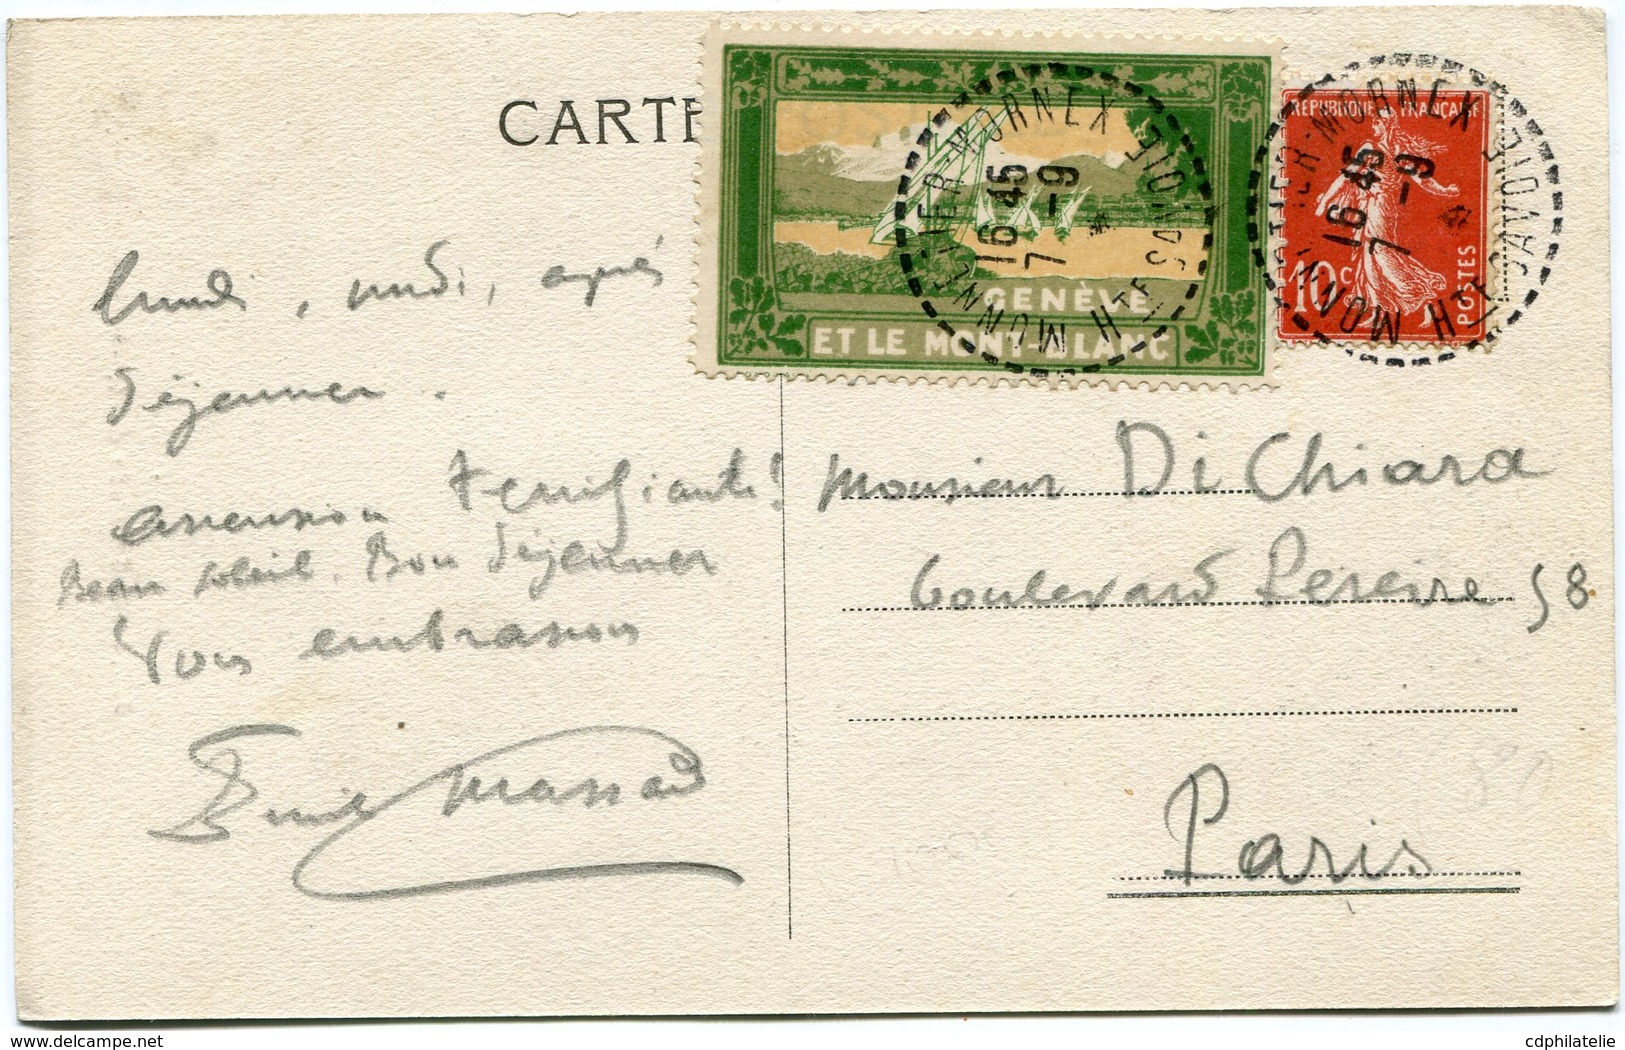 CARTE
GENÈVE
ET LE MONT-BLANC
MONNETIER-MORNEX
16 45
7 -9
*
HTE SAVOIE
REPUBLIQUE FRANÇAISE
10c
POSTES
MONNETIER-MORNEX
16 45
7 -9
*
HTE SAVOIE
lundi, midi, après
déjeuner.
ascension terrifiante!
Beau soleil. Bon déjeuner
Vous embrassons
Emile Massard
Monsieur Di Chiara
boulevard Pereire 58
Paris
delcampe.net
cdphilatelie